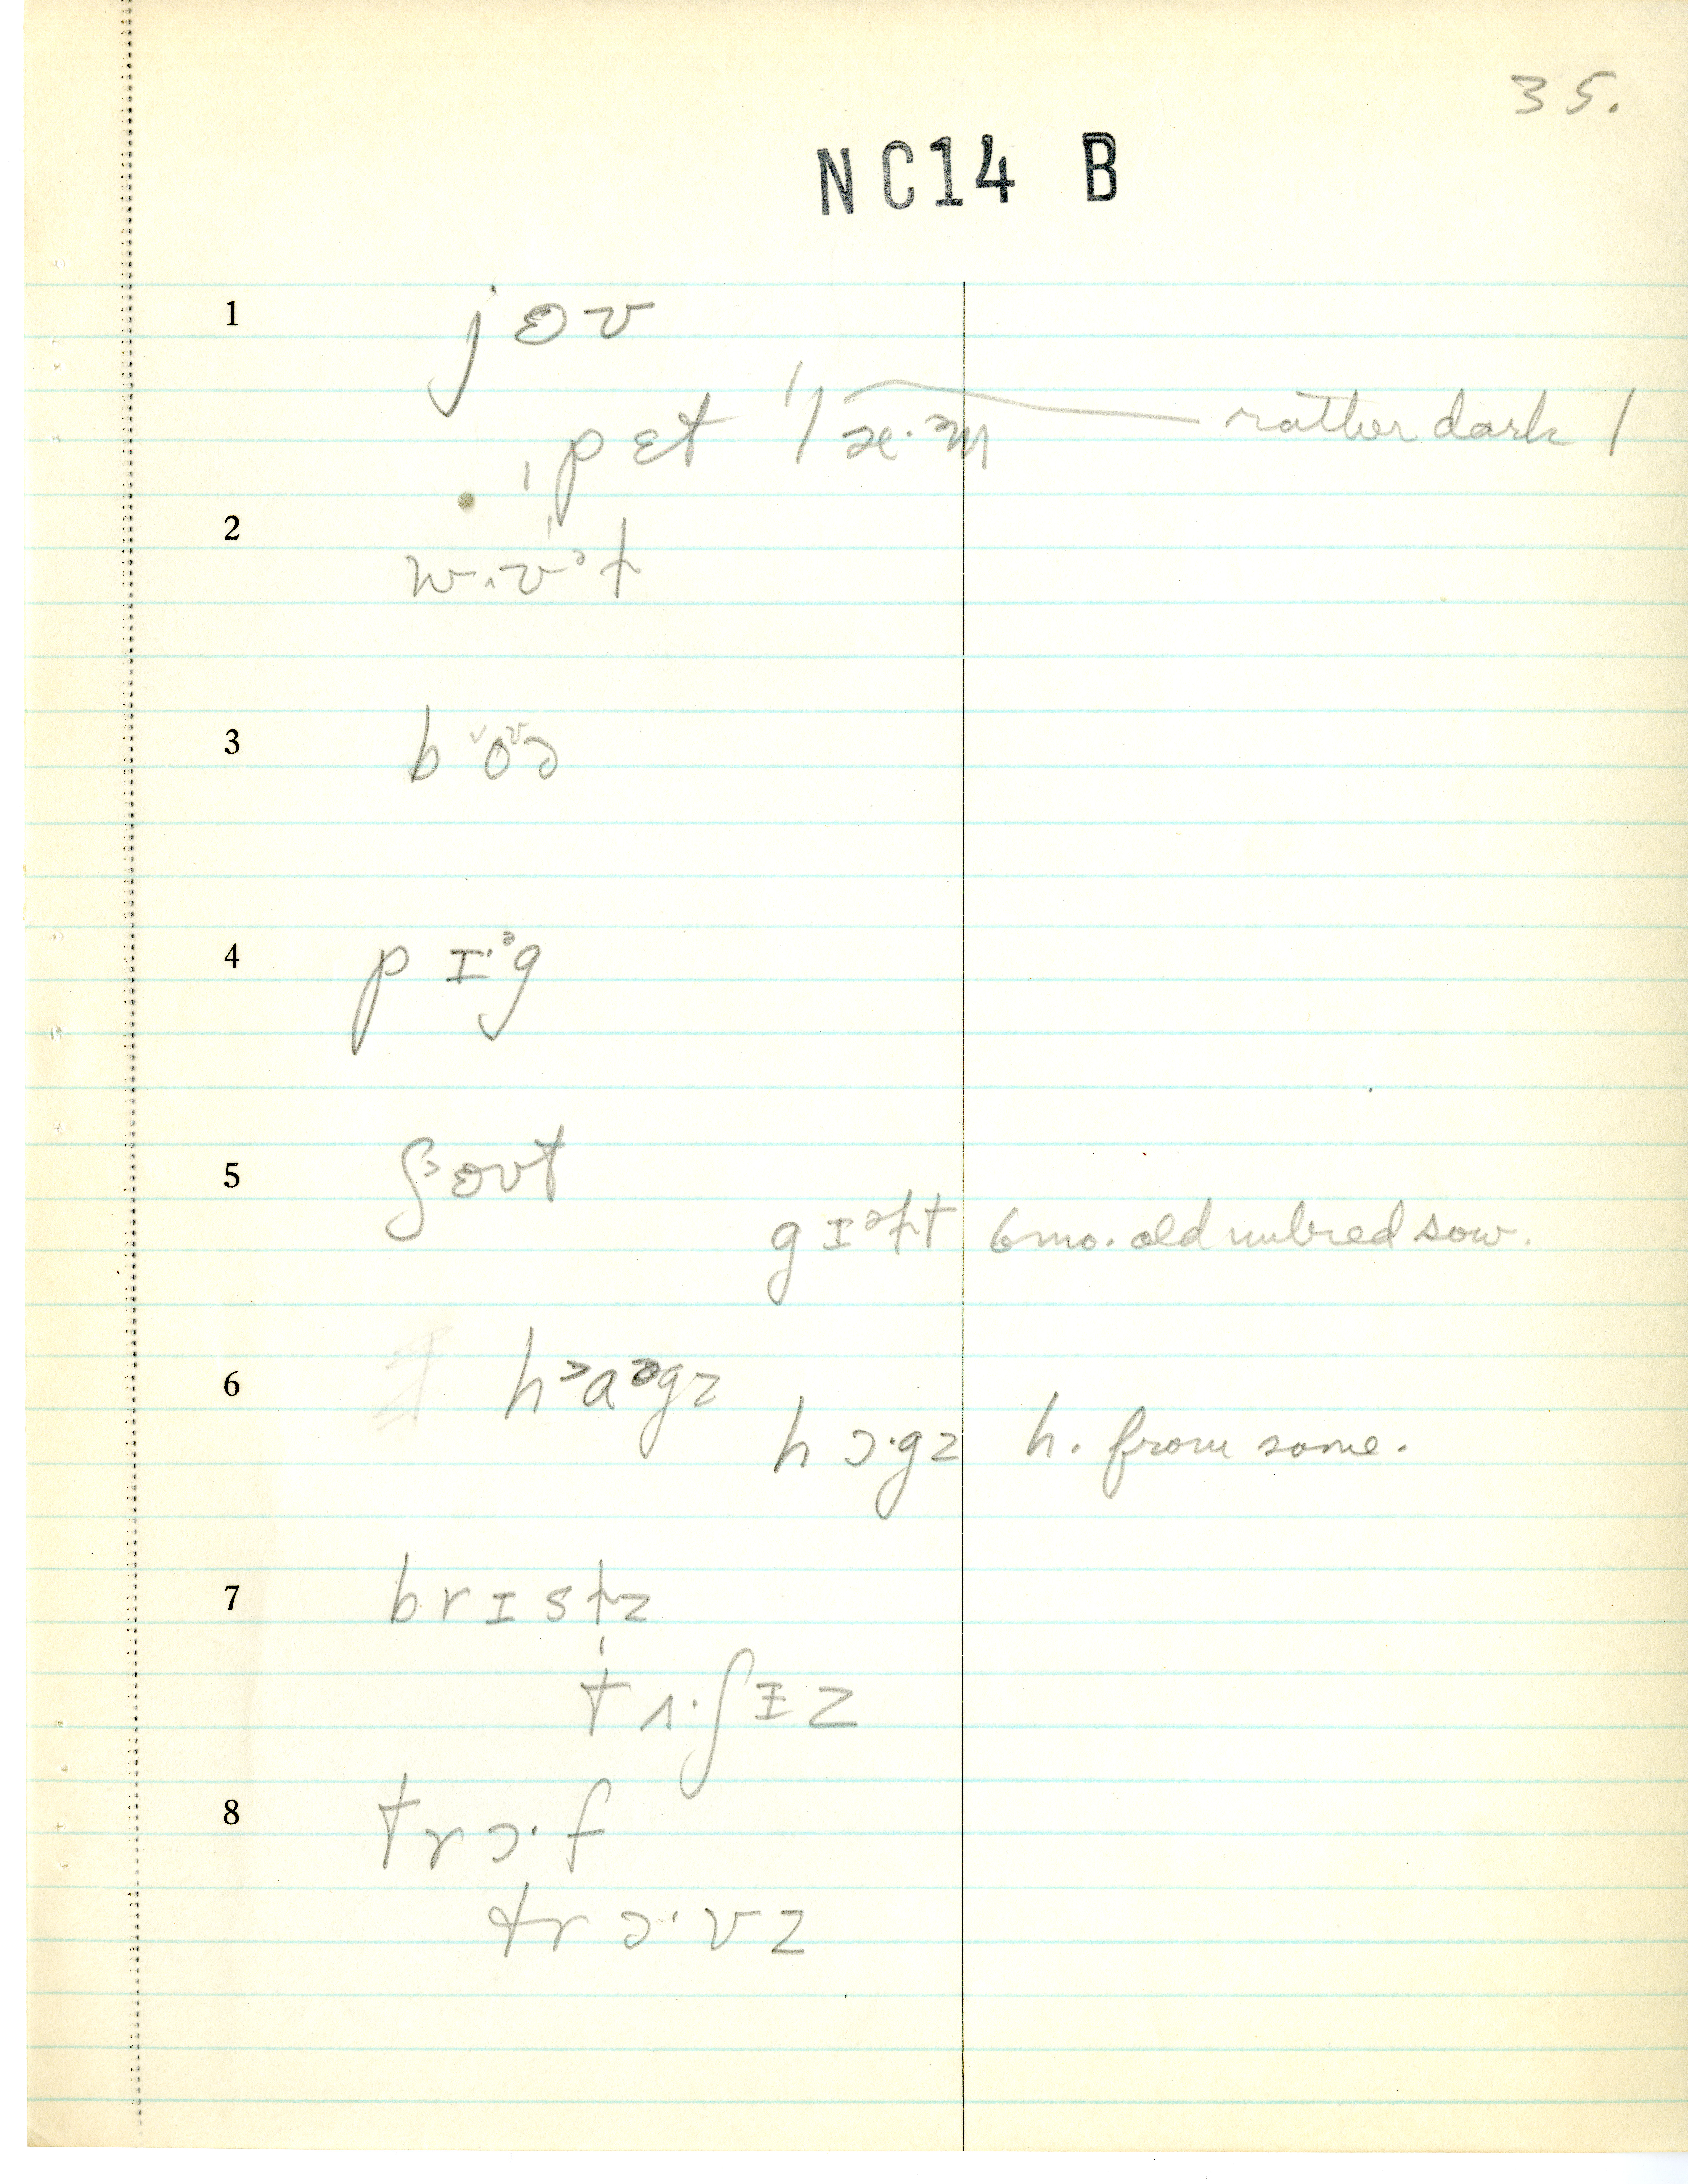 35.
NC14 B
1 joʊ
ˌpɛt ˈlæ·m rather dark l
2
3
4 pɪ·ᵊg
5 ʃoʊt
gɪᵊɫt 6 mo. old unbred sow.
6 hᵓaᵊgz
hɔ·gz h. from some.
7 brɪsɫz
tʌ·ʃɪz
8 trɔ·f
trɔ·vz